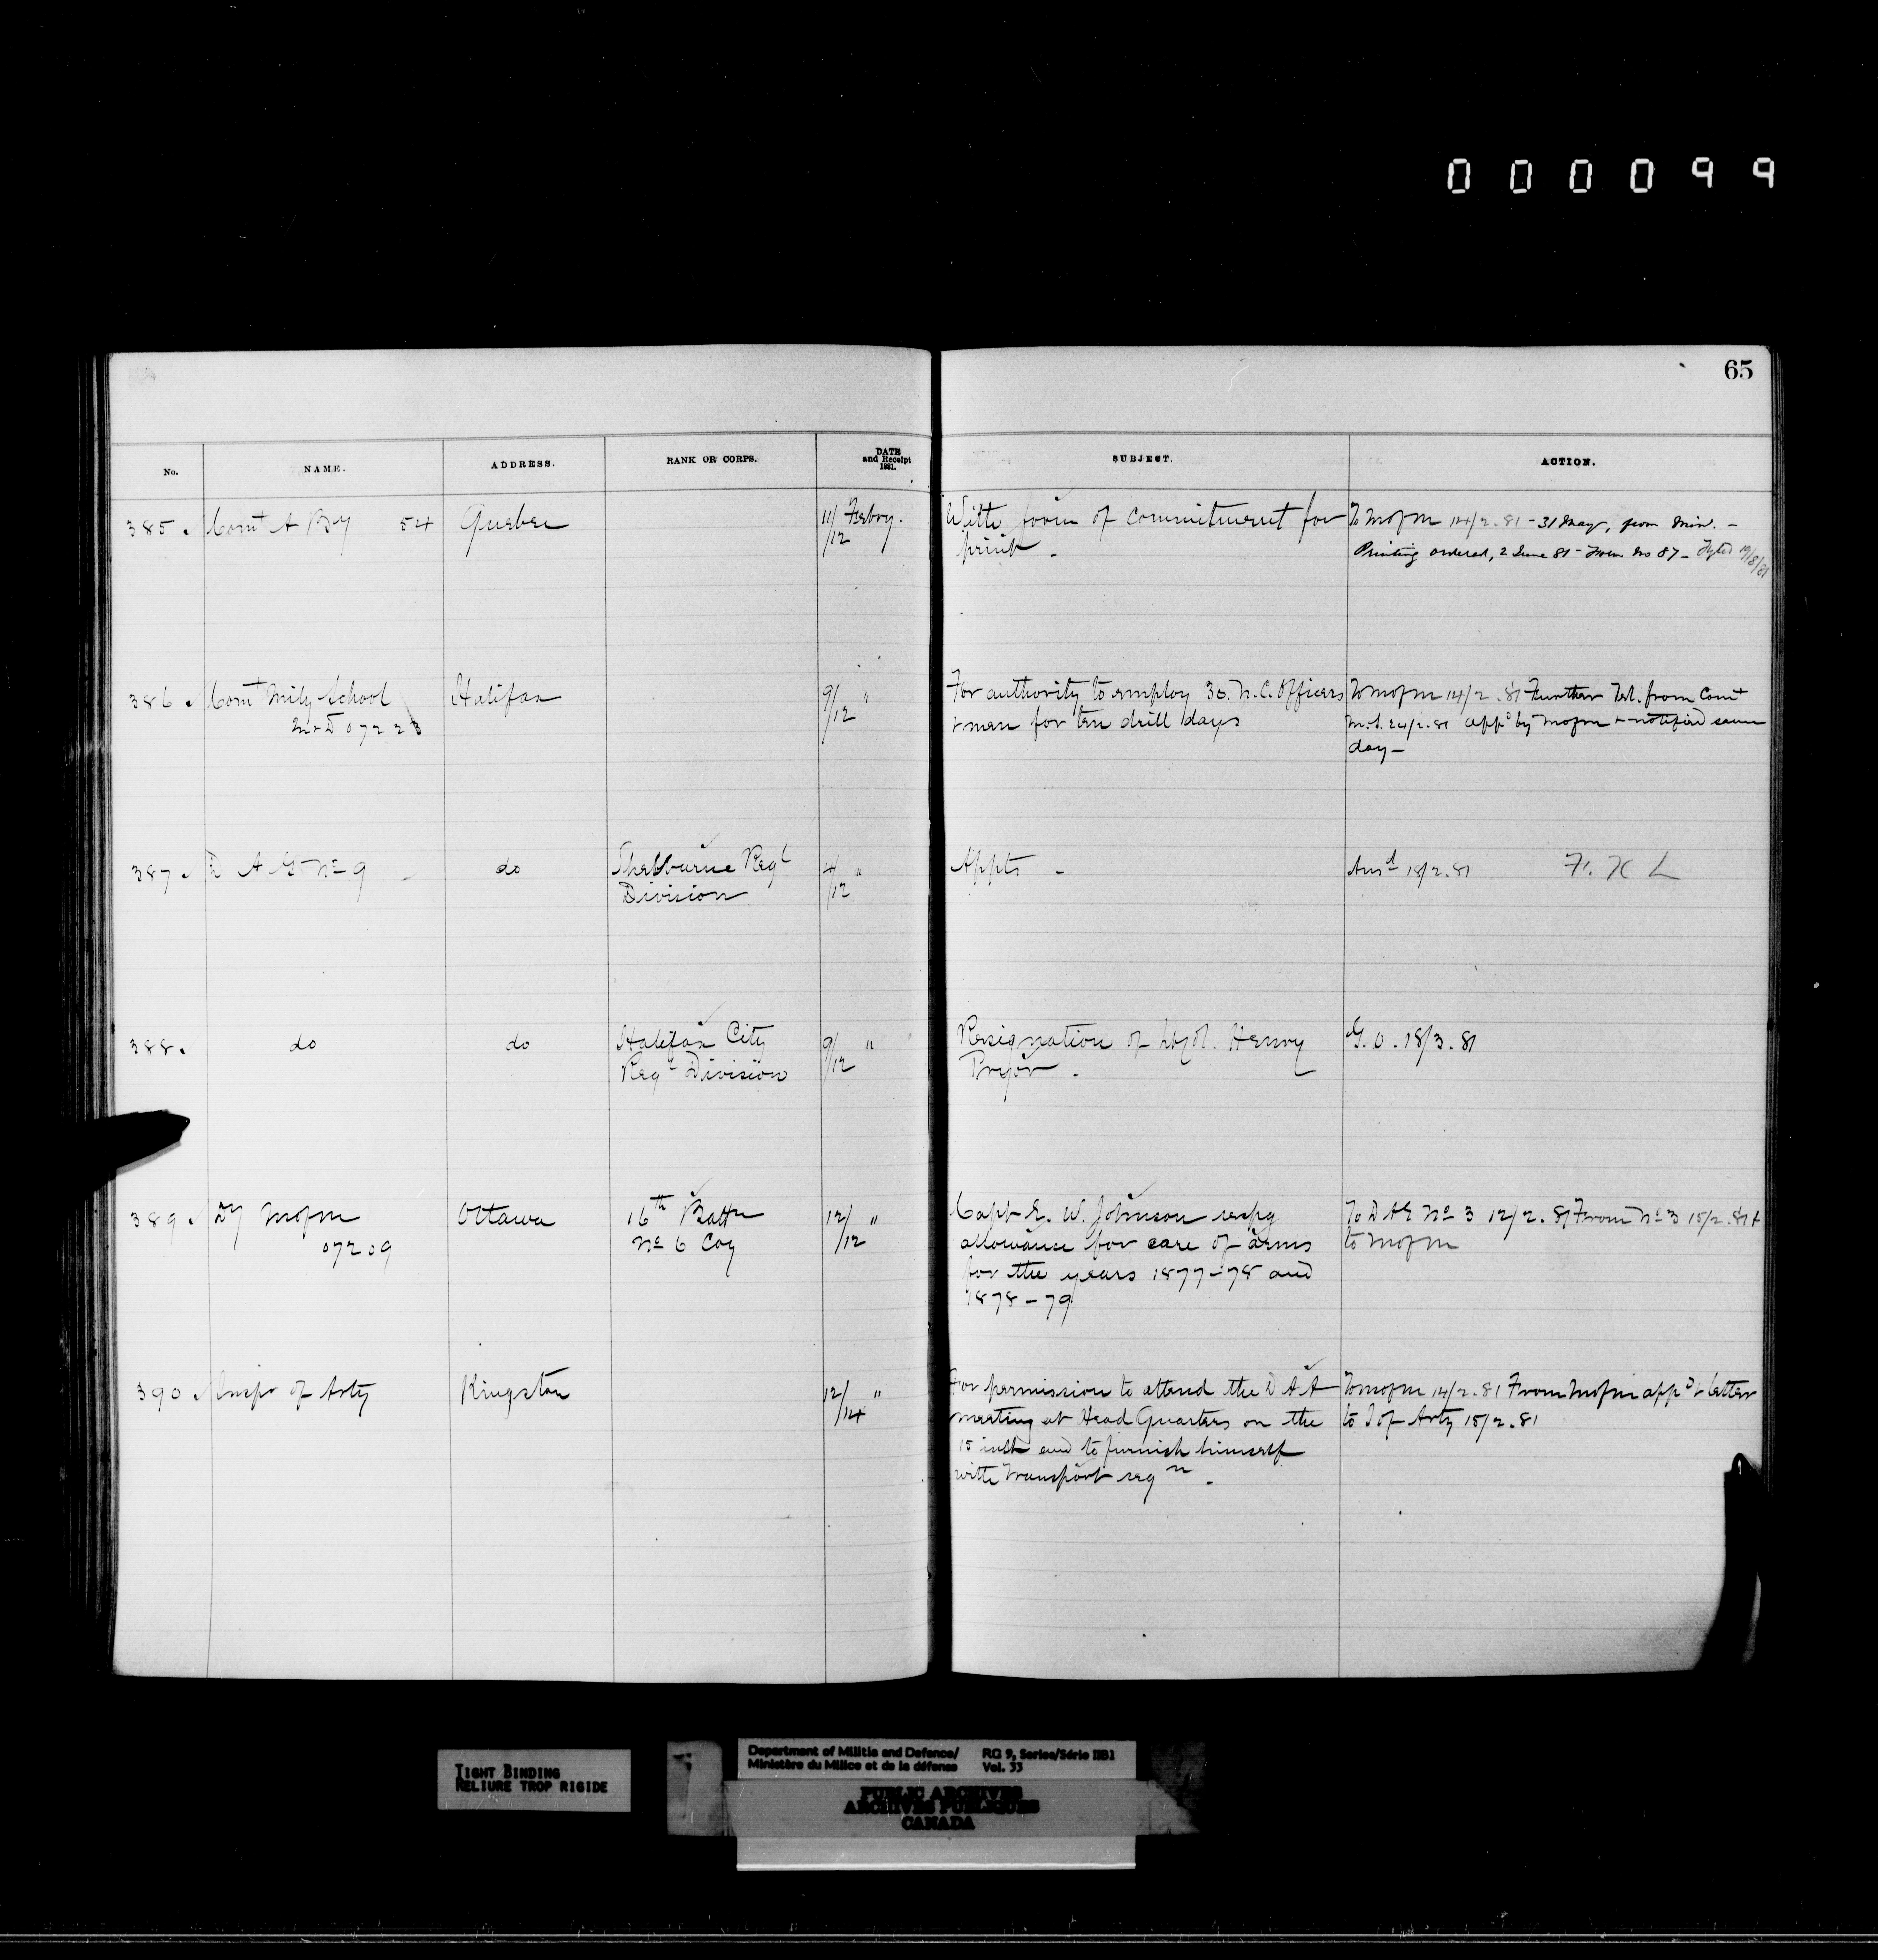 000099
65
No. NAME. ADDRESS. RANK OR CORPS. DATE and Receipt 1881. SUBJECT. ACTION.
385. Comt A By 54 Quebec 11/12 Febry. With form of commitment for To M of M 14/2.81 - 31 May, from Min. -
print - Printing ordered, 2 June 81 - Form No 87 - 19/8/81
386. Comt Mily School Halifax 9/12 " For authority to employ 30. N.C. Officers To M of M 14/2.81 Further Tel. from Comt
M & D 07223 & men for ten drill days M.S. 24/2.81 appd by M of M & notified same
day -
387. D A G No 9 - do Shelburne Regl 4/12 " Appts - Ansd 18/2.81
Division
388. do do Halifax City 9/12 " Resignation of Lt Col. Henry G.O. 18/3.81
Regl Division Pryor.
389. Dy M of M Ottawa 16th Battn 12/12 " Capt E. W. Johnson respg To D A G No 3 12/2.81 From No 3 15/2.81 &
07209 No 6 Coy allowance for care of arms to M of M
for the years 1877-78 and
1878-79
390. Inspr of Arty Kingston 12/14 " For permission to attend the D A A To M of M 14/2.81 From M of M appd & letter
meeting at Head Quarters on the to I of Arty 15/2.81
15 inst and to furnish himself
with Transport reqn.
TIGHT BINDING
RELIURE TROP RIGIDE
Department of Militia and Defence/ RG 9, Series/Série IIB1
Ministère du Milice et de la défense Vol. 33
PUBLIC ARCHIVES
ARCHIVES PUBLIQUES
CANADA